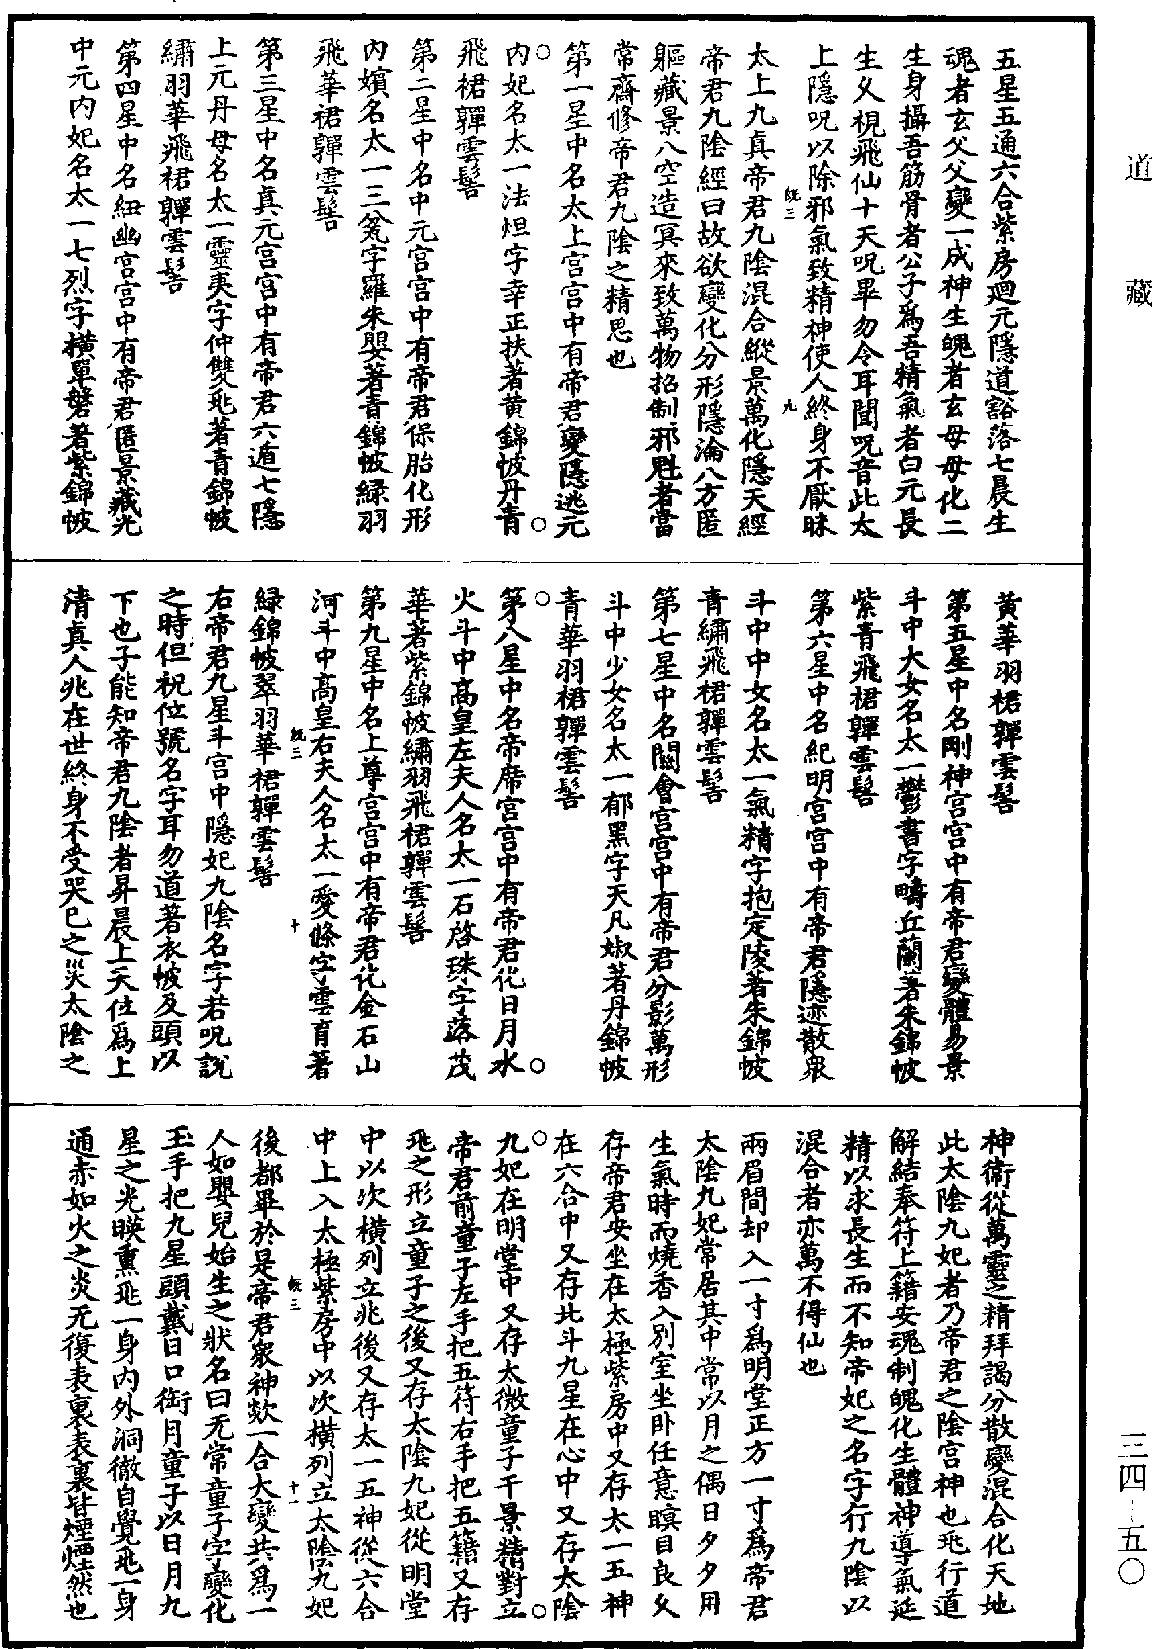 道藏
五星五通六合紫房迴元隱道豁落七晨生
魂者玄父父變一成神生魄者玄母母化二
生身攝吾筋骨者公子爲吾精氣者白元長
生久視飛仙十天呪畢勿令耳聞呪音此太
上隱呪以除邪氣致精神使人終身不厭昧
太上九真帝君九陰混合縱景萬化隱天經
帝君九陰經曰故欲變化分形隱淪八方匿
軀藏景八空造冥來致萬物招制邪魁者當
常齋修帝君九陰之精思也
第一星中名太上宮宮中有帝君變隱逃元
内妃名太一法烜字幸正扶著黄錦帔丹青
飛裙嚲雲髻
第二星中名中元宮宮中有帝君保胎化形
内嬪名太一三㝹字羅朱嬰著青錦帔緑羽
飛華裙嚲雲髻
第三星中名真元宮宮中有帝君六遁七隱
上元丹母名太一靈夷字仲雙兆著青錦帔
繡羽華飛裙嚲雲髻
第四星中名紐幽宮宮中有帝君匿景藏光
中元内妃名太一七烈字横單磐著紫錦帔
黄華羽裙嚲雲髻
第五星中名剛神宮宮中有帝君變體易景
斗中大女名太一鬱書字疇丘蘭著朱錦帔
紫青飛裙嚲雲髻
第六星中名紀明宮宮中有帝君隱迹散衆
斗中中女名太一氣精字抱定陵著朱錦帔
青繡飛裙嚲雲髻
第七星中名關會宮宮中有帝君分影萬形
斗中少女名太一郁黑字天凡婌著丹錦帔
青華羽裙嚲雲髻
第八星中名帝席宮宮中有帝君化日月水
火斗中高皇左夫人名太一石啓珠字落茂
華著紫錦帔繡羽飛裙嚲雲髻
第九星中名上尊宮宮中有帝君化金石山
河斗中高皇右夫人名太一愛條字雲育著
緑錦帔翠羽華裙嚲雲髻
右帝君九星斗宮中隱妃九陰名字若呪説
之時但祝位號名字耳勿道著衣帔及頭以
下也子能知帝君九陰者昇晨上天位爲上
清真人兆在世終身不受哭已之災太陰之
神衛從萬靈之精拜謁分散變混合化天地
此太陰九妃者乃帝君之陰宮神也兆行道
解結奉符上籍安魂制魄化生體神導氣延
精以求長生而不知帝妃之名字行九陰以
混合者亦萬不得仙也
兩眉間却入一寸爲明堂正方一寸爲帝君
太陰九妃常居其中常以月之偶日夕夕用
生氣時而燒香入別室坐卧任意瞑目良久
存帝君安坐在太極紫房中又存太一五神
在六合中又存北斗九星在心中又存太陰
九妃在明堂中又存太微童子干景精對立
帝君前童子左手把五符右手把五籍又存
兆之形立童子之後又存太陰九妃從明堂
中以次横列立兆後又存太一五神從六合
中上入太極紫房中以次横列立太陰九妃
後都畢於是帝君衆神欻一合大變共爲一
人如嬰兒始生之狀名曰无常童子字變化
玉手把九星頭戴日口銜月童子以日月九
星之光暎熏兆一身内外洞徹自覺兆一身
通赤如火之炎无復表裏表裏皆煙烓然也
既三
九
既三
十
既三
十一
三四-五〇